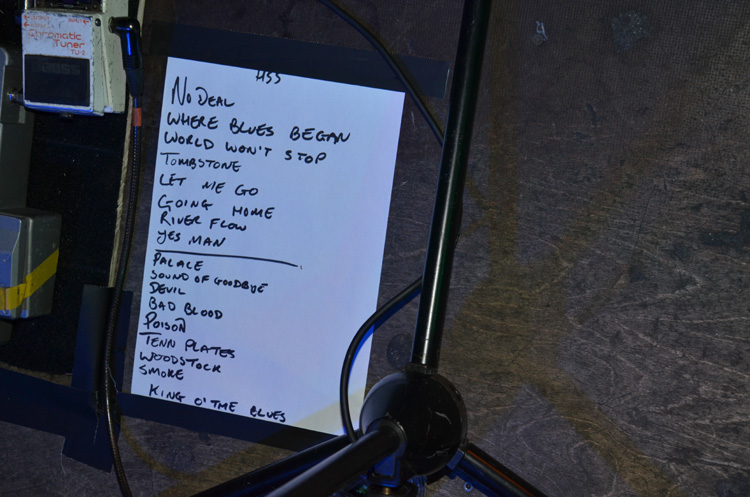 Chromatic
Tuner
TU-2
No DEAL
WHERE BLUES BEGAN
WORLD WON'T STOP
TOMBSTONE
LET ME GO
GOING HOME
RIVER FLOW
YES MAN
PALACE
SOUND OF GOODBYE
DEVIL
BAD BLOOD
POISON
TENN PLATES
WOODSTOCK
SMOKE
KING O' THE BLUES